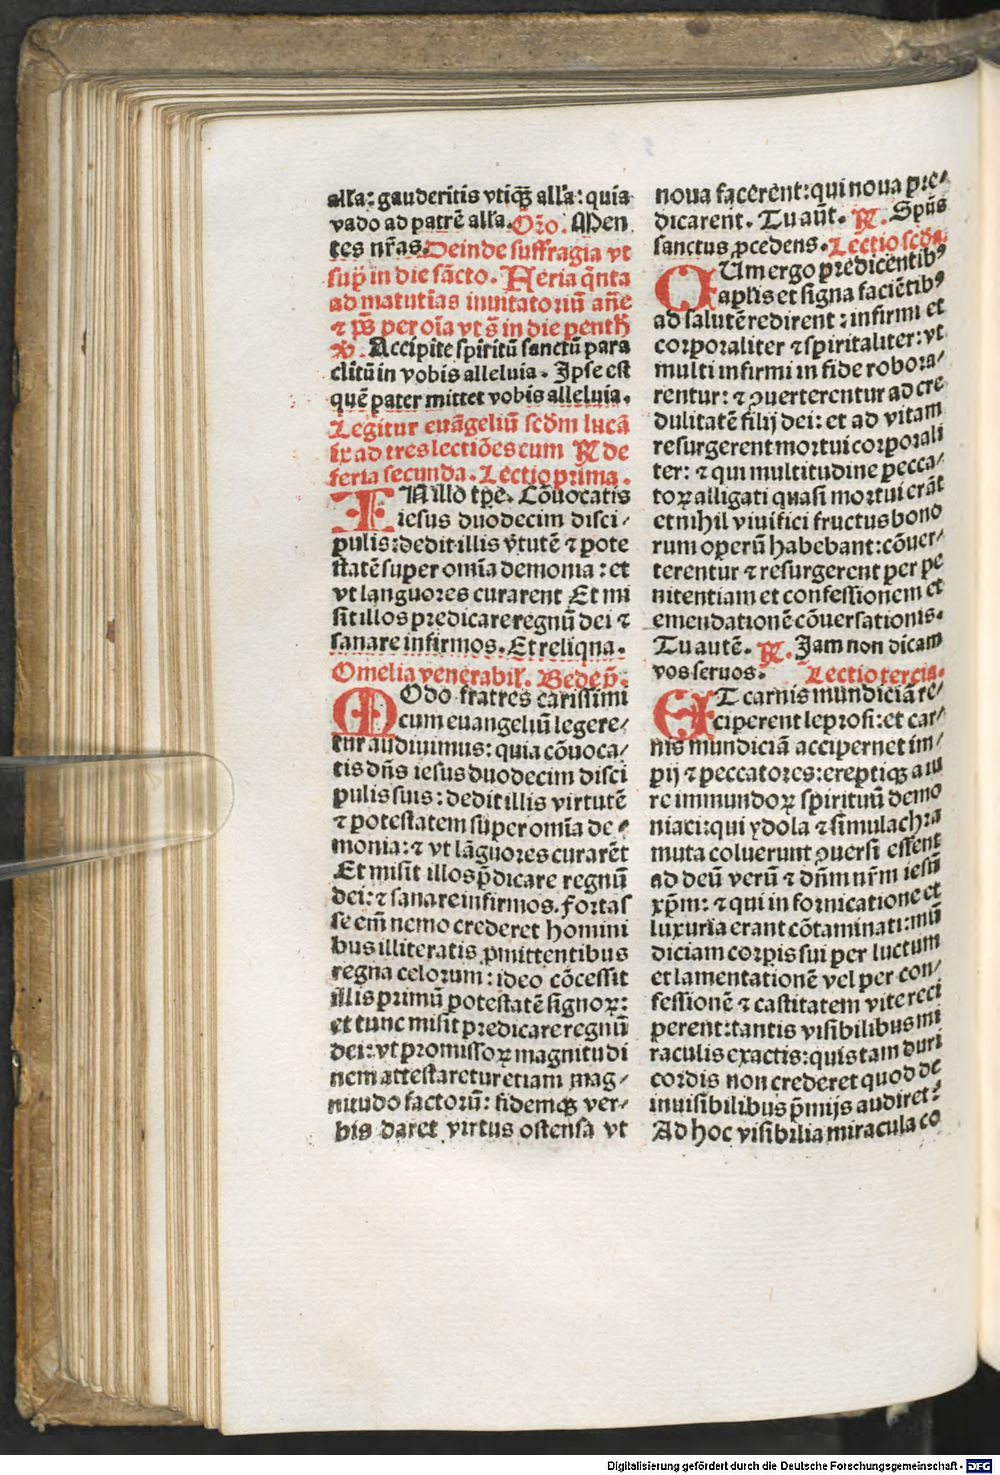 alľa: gauderi̅tis vtiq̅ꝫ alľa: quia
vado ad patre̅ alľa. Or̅o. Men
tes nr̅as. Deinde suffragia vt
sup̅ in die sa̅cto. Feria q̅nta
ad matuti̅as inuitatoriu̅ an̅e
⁊ ps̅ per oi̅a vt s̅ in die penth̅
℣. Accipite spiritu̅ sanctu̅ para
clitu̅ in vobis alleluia. Ipse est
que̅ pater mittet vobis alleluia.
Legitur eua̅geliu̅ scd̅m luca̅
ix ad tres lectio̅es cum ℟ de
feria secunda. Lectio prima.
IN illo tp̅e. Co̅uocatis
iesus duodecim disci⸗
pulis: dedit illis v̅tute̅ ⁊ pote
state̅ super omi̅a demonia: et
vt languores curarent Et mi
sit illos predicare regnu̅ dei ⁊
sanare infirmos. Et reliqua.
Omelia venerabil̕. Bede p̅.
MOdo fratres carissimi
cum euangeliu̅ legere⸗
tur audiuimus: quia co̅uoca⸗
tis dn̅s iesus duodecim disci
pulis suis: dedit illis virtute̅
⁊ potestatem super omi̅a de⸗
monia: ⁊ vt la̅guores curare̅t
Et misit illos p̅dicare regnu̅
dei: ⁊ sanare infirmos. fortas
se em̅ nemo crederet homini
bus illiteratis ꝓmittentibus
regna celorum: ideo co̅cessit
illis primu̅ potestate̅ signoꝝ:
et tunc misit predicare regnu̅
dei: vt promissoꝝ magnitudi
nem attestaretur etiam mag⸗
nitudo factoru̅: fidemqꝫ ver⸗
bis daret virtus ostensa vt
noua facerent: qui noua pre⸗
dicarent. Tu au̅t. ℟. Spu̅s
sanctus ꝓcedens. Lectio scd̅a.
CUm ergo predicentibꝰ
apl̅is et signa facie̅tibꝰ
ad salute̅ redirent: infirmi et
corporaliter ⁊ spiritaliter: vt
multi infirmi in fide robora⸗
rentur: ⁊ ꝯuerterentur ad cre
dulitate̅ filij dei: et ad vitam
resurgerent mortui corporali
ter: ⁊ qui multitudine pecca⸗
toꝝ alligati quasi mortui era̅t
et nihil viuifici fructus bono
rum operu̅ habebant: co̅uer⸗
terentur ⁊ resurgerent per pe
nitentiam et confessionem et
emendatione̅ co̅uersationis.
Tu aute̅. ℟. Jam non dicam
vos seruos. Lectio tercia.
ET carnis mundicia̅ re⸗
ciperent leprosi: et car⸗
nis mundicia̅ accipernet im⸗
pij ⁊ peccatores: ereptiqꝫ a iu
re immundoꝝ spirituu̅ demo
niaci: qui ydola ⁊ simulachra
muta coluerunt ꝯuersi essent
ad deu̅ veru̅ ⁊ dn̅m nr̅m iesu̅
xp̅m: ⁊ qui in fornicatione et
luxuria erant co̅taminati: mu̅
diciam corpis sui per luctum
et lamentatione̅ vel per con⸗
fessione̅ ⁊ castitatem vite reci
perent: tantis visibilibus mi
raculis exactis: quis tam duri
cordis non crederet quod de
inuisibilibus p̅mijs audiret:
Ad hoc visibilia miracula co
Digitalisierung gefördert durch die Deutsche Forschungsgemeinschaft - DFG